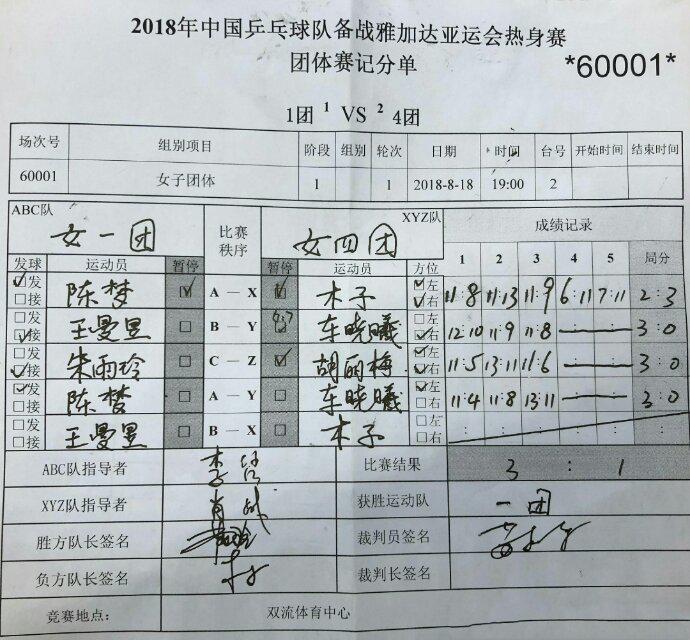 2018年中国乒乓球队备战雅加达亚运会热身赛
团体赛记分单 *60001*
1团 1 VS 2 4团
场次号 组别项目 阶段 组别 轮次 日期 时间 台号 开始时间 结束时间
60001 女子团体 1 1 2018-8-18 19:00 2
ABC队 女一团 比赛秩序 XYZ队 女四团 成绩记录
发球 运动员 暂停 暂停 运动员 方位 1 2 3 4 5 局分
发 接 陈梦 A — X 木子 左 右 11:8 11:13 11:9 6:11 7:11 2:3
发 接 王曼昱 B — Y 车晓曦 左 右 12:10 11:9 11:8 3:0
发 接 朱雨玲 C — Z 胡丽梅 左 右 11:5 13:11 11:6 3:0
发 接 陈梦 A — Y 车晓曦 左 右 11:4 11:8 13:11 3:0
发 接 王曼昱 B — X 木子 左 右 : : : : : :
ABC队指导者 比赛结果 3 : 1
XYZ队指导者 肖战 获胜运动队 一团
胜方队长签名 裁判员签名
负方队长签名 裁判长签名
竞赛地点: 双流体育中心